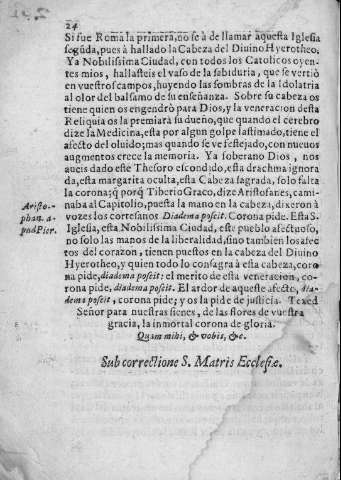 24
Si fue Roma la primera, no se à de llamar aquesta Iglesia
segũda, pues à hallado la Cabeza del Diuino Hyerotheo.
Ya Nobilissima Ciudad, con todos los Catolicos oyen-
tes mios, hallasteis el vaso de la sabiduria, que se vertiò
en vuestros campos, huyendo las sombras de la Idolatria
al olor del balsamo de su enseñanza. Sobre su cabeza os
tiene quien os engendrò para Dios, y la veneracion desta
Reliquia os la premiarà su dueño, que quando el cerebro
dize la Medicina, esta por algun golpe lastimado, tiene el
afecto del oluido; mas quando se ve festejado, con nueuos
augmentos crece la memoria. Ya soberano Dios, nos
aueis dado este Thesoro escondido, esta drachma ignora
da, esta margarita oculta, esta Cabeza sagrada, solo falta
la corona; q̃ porq̃ Tiberio Graco, dize Aristofanes, cami-
naba al Capitolio, puesta la mano en la cabeza, dixeron à
vozes los cortesanos Diadema poscit. Corona pide. Esta S.
Iglesia, esta Nobilissima Ciudad, este pueblo afectuoso,
no solo las manos de la liberalidad, sino tambien los afec
tos del corazon, tienen puestos en la cabeza del Diuino
Hyerotheo, y quien todo lo consagra à esta cabeza, coro
na pide, diadema poscit: el merito de esta veneracion, co-
rona pide, diadema poscit. El ardor de aqueste afecto, dia-
dema poscit, corona pide; y os la pide de justicia. Texed
Señor para nuestras sienes, de las flores de vuestra
gracia, la inmortal corona de gloria.
Quam mihi, & vobis, &c.
Aristo-
phan. a-
pud Pier.
Sub correctione S. Matris Ecclesiæ.